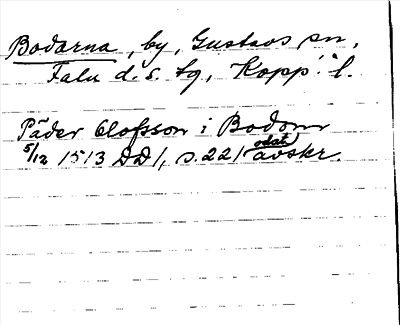 Bodarna, by, Gustavs sn,
Falu d. s. tg, Kopp. l.
Päder Olofsson i Bodom
5/12 1513 DD1, s. 221 odat. avskr.